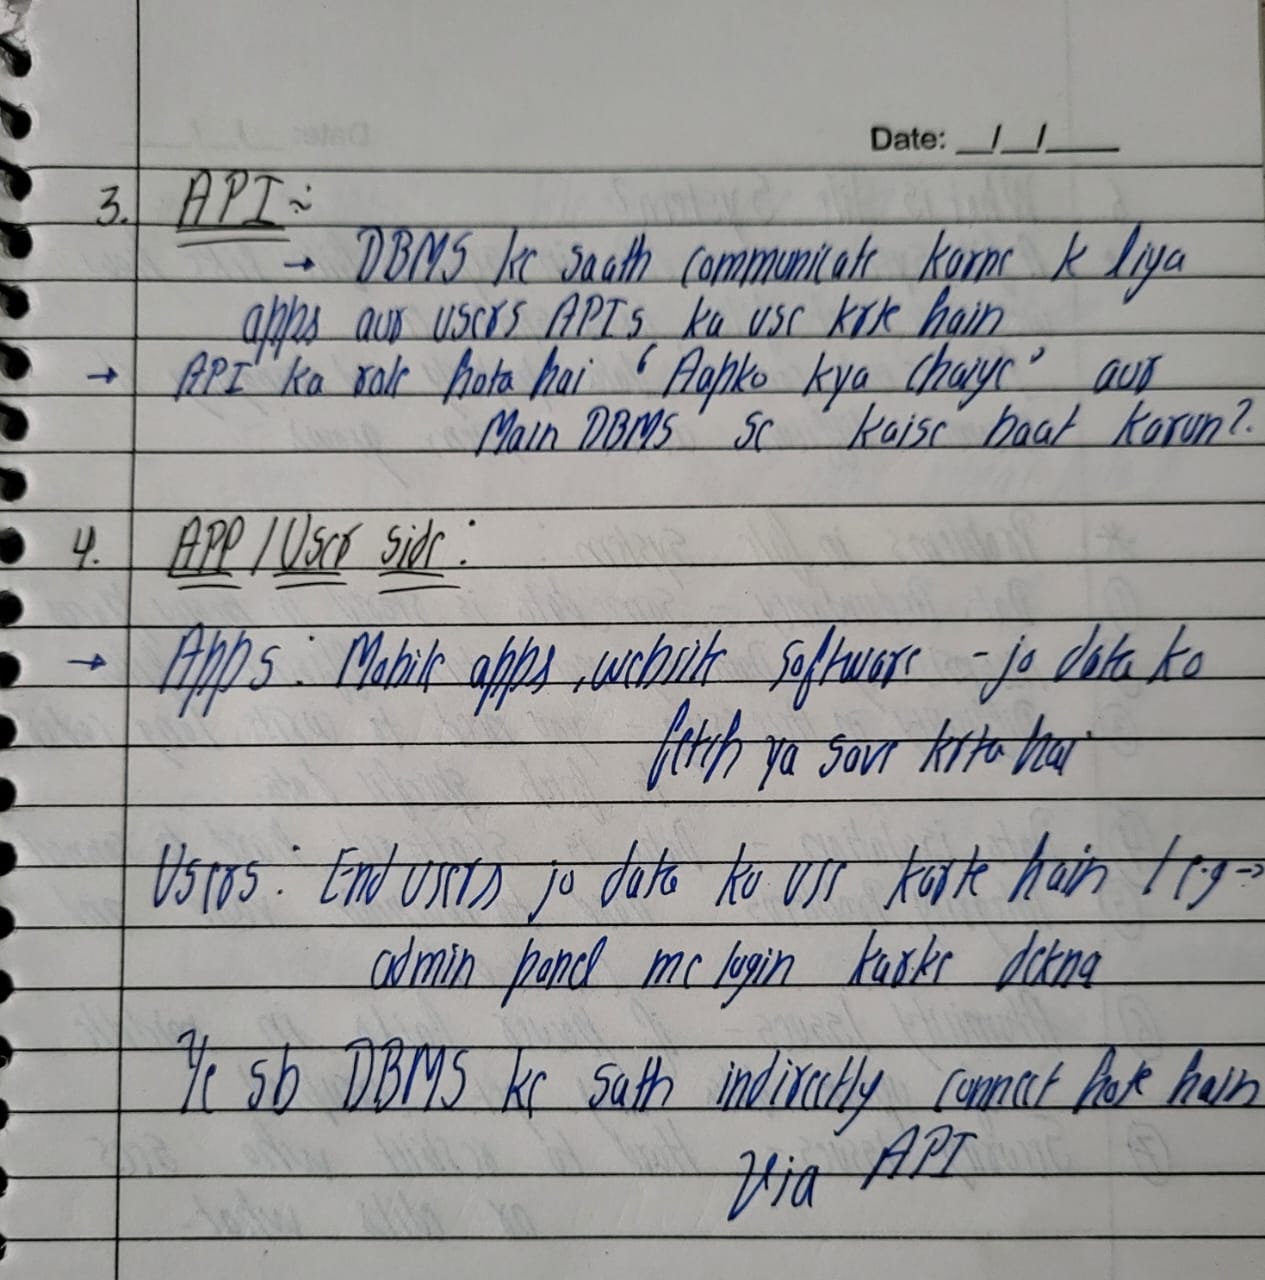 Date: __/__/____
3. API :-
→ DBMS ke saath communicate karne k liya
apps aur users APIs ka use krte hain
→ API ka role hota hai 'Aapko kya chaiye' aur
Main DBMS se kaise baat karun?
4. APP / User side :
→ Apps : Mobile apps, website software - jo data ko
fetch ya save krta hai
Users : End users jo data ko use karte hain / e.g →
admin panel me login karke dekna
Ye sb DBMS ke sath indirectly connect hote hain
via API